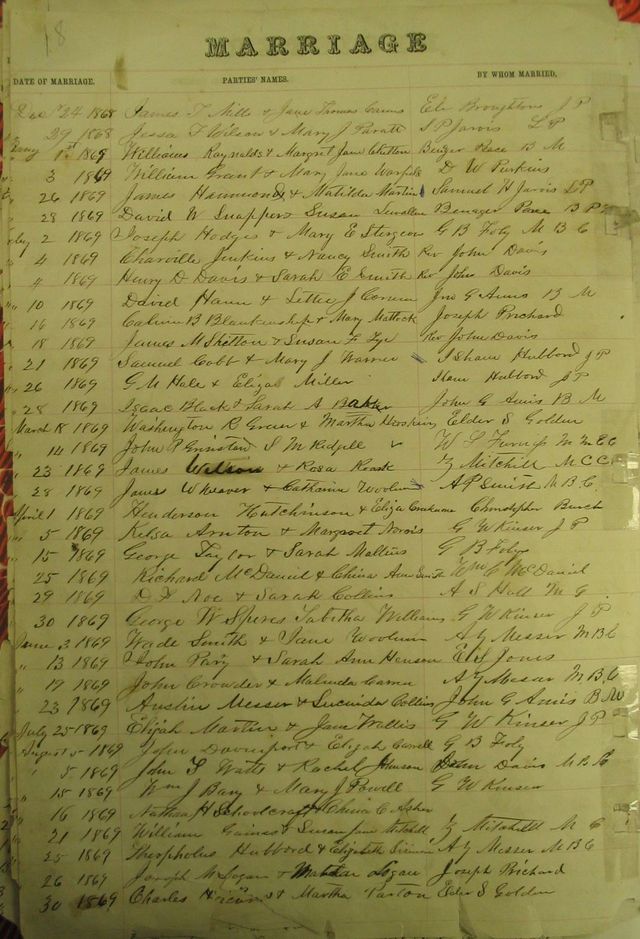 18
MARRIAGE
DATE OF MARRIAGE. PARTIES' NAMES. BY WHOM MARRIED.
Dec 24 1868 James T Mills & Jane Thomas Eli Broughton J P
" 29 1868 Jessa F Wilson & Mary J S P Jarvis
1st 1869 Williams Raynolds & Margret Jane Benager B M
" 3 1869 William Grant & Mary Jane D W Perkins
" 26 1869 James Hammonds & Matilda Martin Samuel H Jarvis
" 28 1869 David W Snapper Susan Lewallen Benager
2 1869 Joseph Hodge & Mary E Sturgeon G B Foly M B C
" 4 1869 Charville Jenkins & Nancy Smith Rev John Davis
" 4 1869 Henry D Davis & Sarah E Smith Rev John Davis
" 10 1869 David Hann & Lettie J Jno G Amis B M
" 16 1869 Calvin B Blankenship & Mary Joseph Prichard
" 18 1869 James M Shelton & Susan F Rev John Davis
" 21 1869 Samuel Cobb & Mary J Warner Hubbord J P
" 26 1869 G M Hale & Elizab Miller Hubbord J P
" 28 1869 Isaac Black & Sarah A Baker John G Amis B M
March 18 1869 Washington R Green & Martha Hoskins Elder S Golden
" 14 1869 John R Grinstead S M Ridgell
" 23 1869 James Wilson & Rosa G Mitchell M C C
" 28 1869 James W Weaver & Catharine A P Smith M B C
April 1 1869 Henderson Hutchinson & Eliza Christopher Burch
" 5 1869 Kelsa & Margaret G W Kinser J P
" 15 1869 George Taylor & Sarah Mullins G B Foly
" 25 1869 Richard McDaniel & China Ann Smith Wm C McDaniel
" 29 1869 D F Noe & Sarah Collins A S Holl M G
" 30 1869 George W Spires Tabitha Williams G W Kinser J P
June 3 1869 Wade Smith & Jane Woolum A G Messer M B C
" 13 1869 John & Sarah Ann Henson E S Jones
" 19 1869 John Crowder & Malinda A G Messer M B C
" 23 1869 Austin Messer & Lucinda Collins John G Amis B M
July 25 1869 Elijah Martin & Jane Wallis G W Kinser J P
August 5 1869 John Davenport & Elijah G B Foly
" 5 1869 John T Watts & Rachel Johnson John Davis M B C
" 15 1869 Wm J & Mary J Powell G W Kinser
" 16 1869 Nathan H Schoolcraft & China C Asher
" 21 1869 William Gaines & Susan Jane Mitchell G Mitchell M C
" 25 1869 Theopholus Hubbord & Elizabeth A G Messer M B C
" 26 1869 Joseph M Logan & Logan Joseph Prichard
" 30 1869 Charles & Martha Parton Elder S Golden